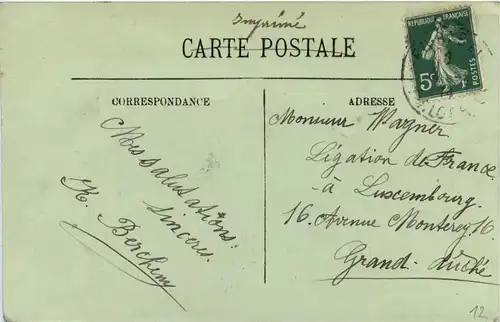 Imprimé
CARTE POSTALE
RÉPUBLIQUE FRANÇAISE
5c
POSTES
CORRESPONDANCE
ADRESSE
Mes salutations
sincères.
K. Bercheny
Monsieur Wagner
Légation de France
- à Luxembourg.
16. Avenue Monterey 16
Grand-duché
12